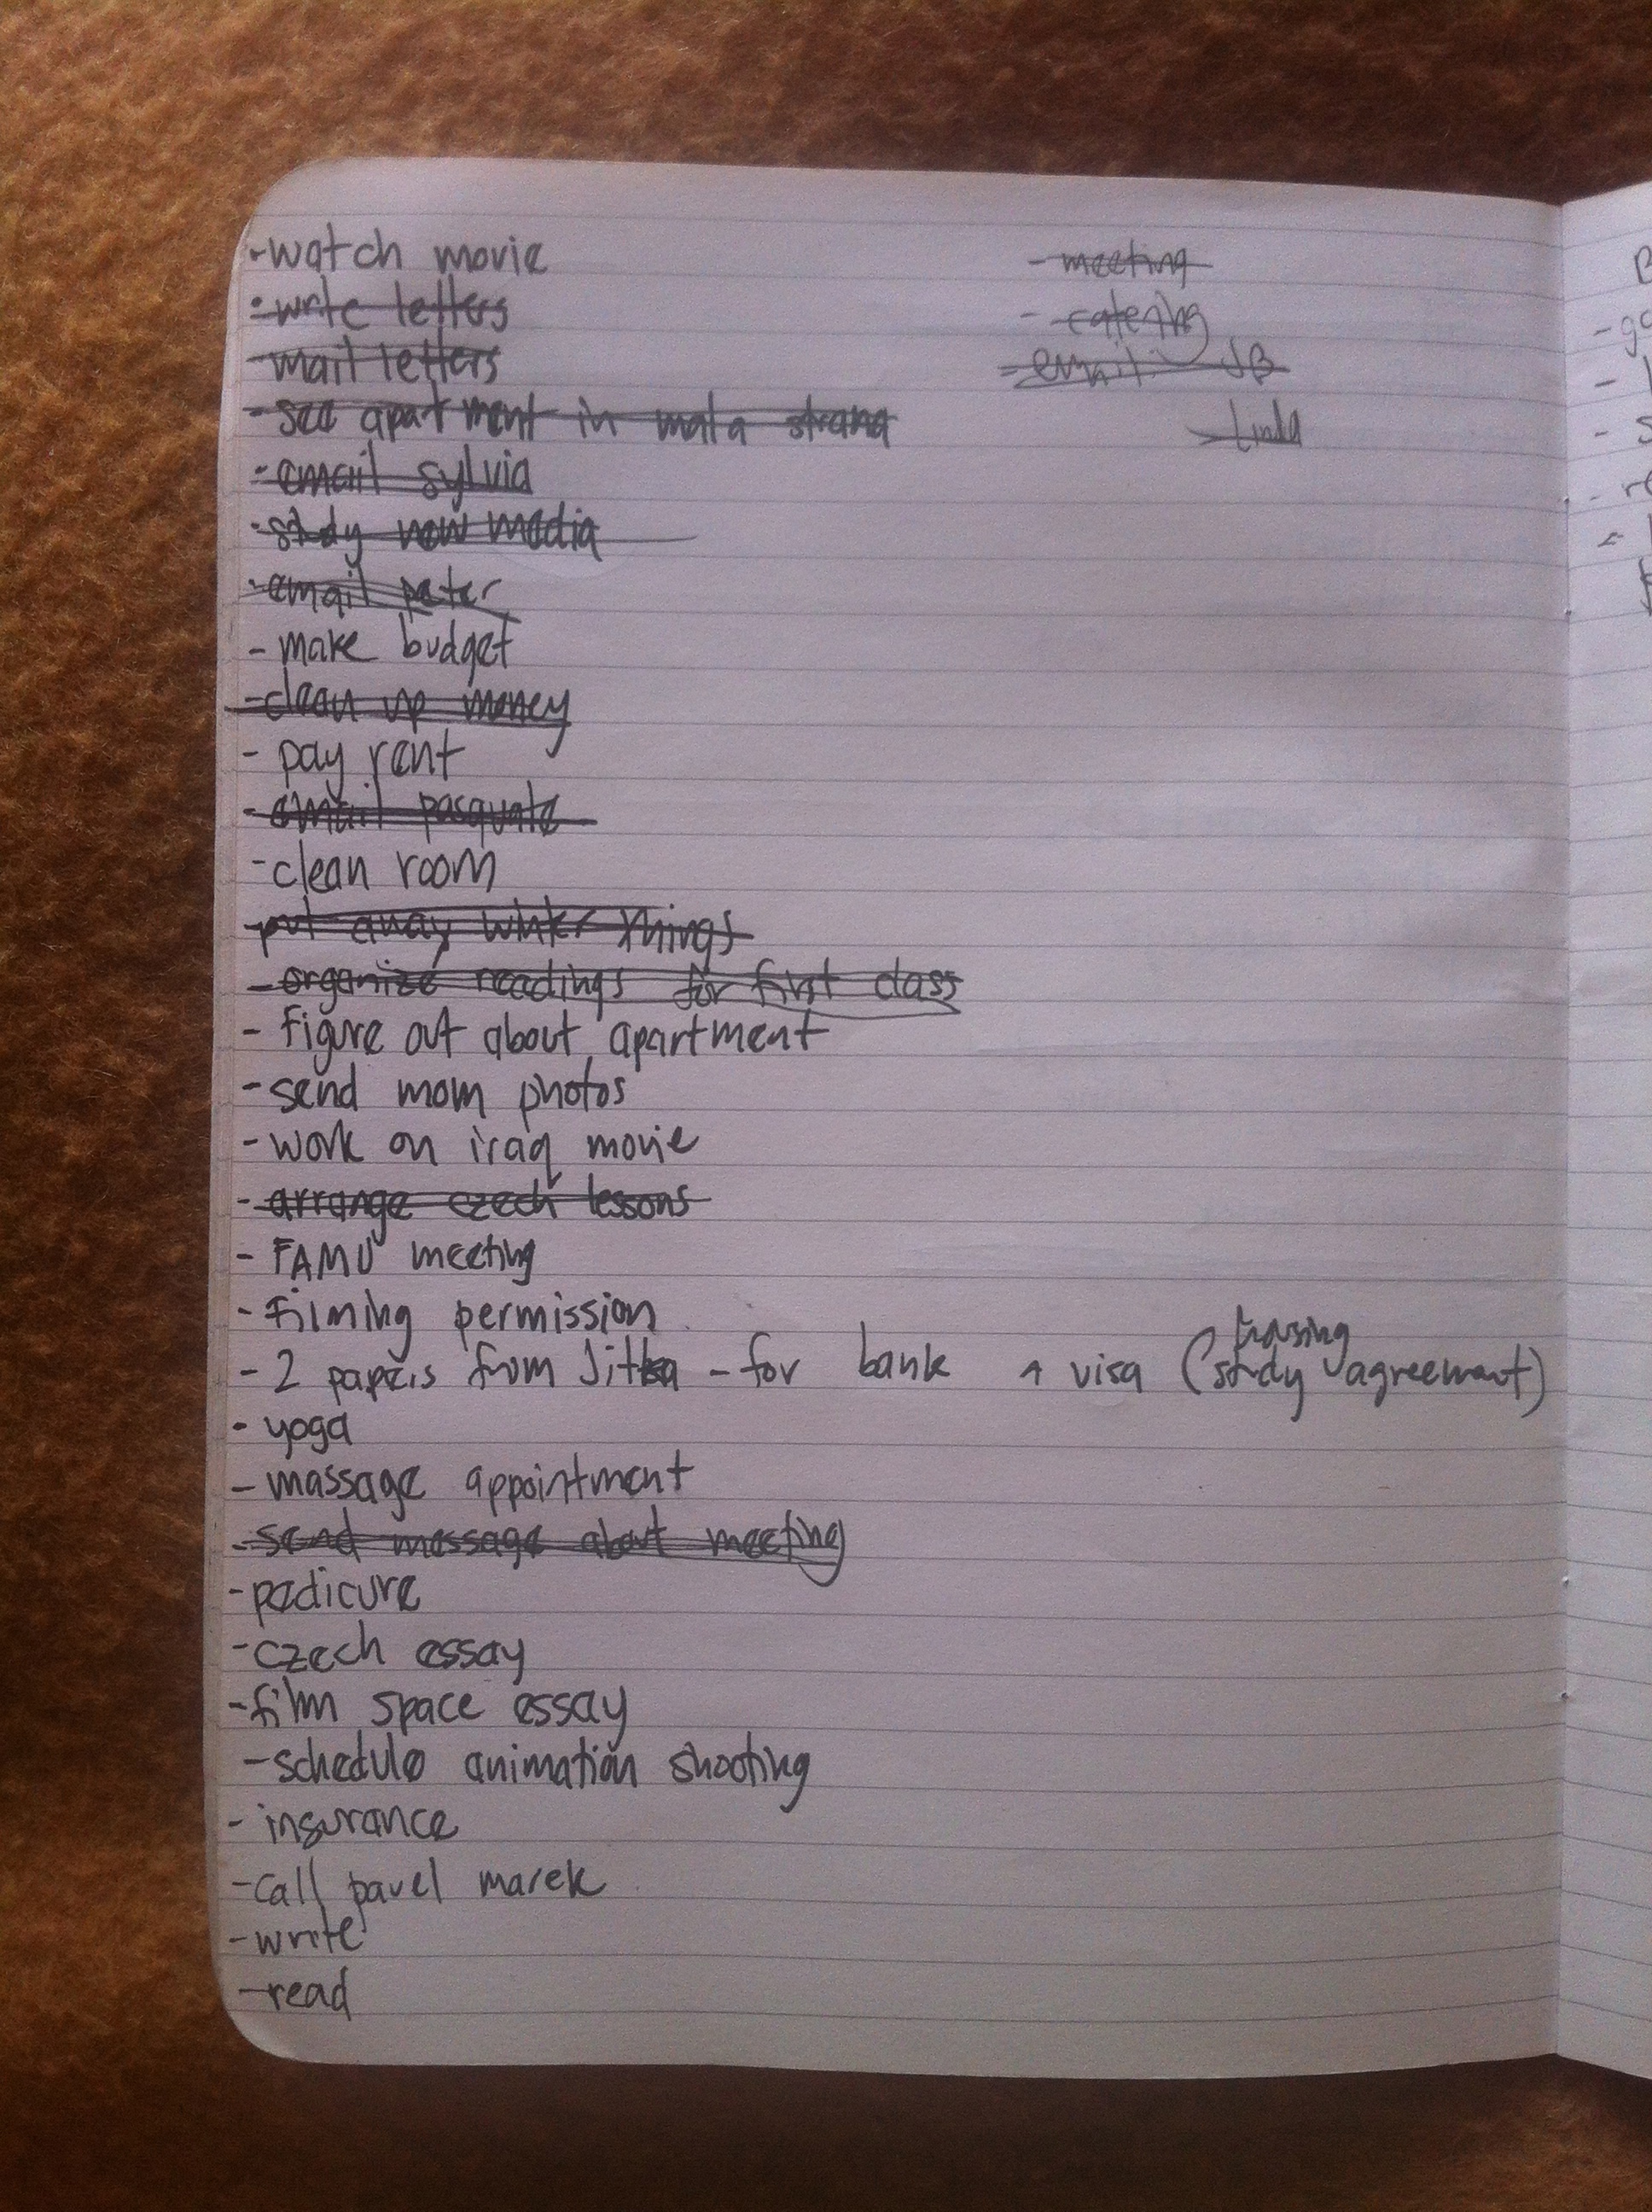 - watch movie
- write letters
- mail letters
- see apartment in mala strana
- email sylvia
- study new media
- email peter
- make budget
- clean up money
- pay rent
- email pasquale
- clean room
- put away winter things
- organize readings for first class
- figure out about apartment
- send mom photos
- work on iraq movie
- arrange czech lessons
- FAMU meeting
- filming permission
housing
- 2 papers from Jitka - for bank + visa (study agreement)
- yoga
- massage appointment
- send message about meeting
- pedicure
- czech essay
- film space essay
- schedule animation shooting
- insurance
- call pavel marek
- write
- read
- meeting
- catering
- email - JB
- Linda